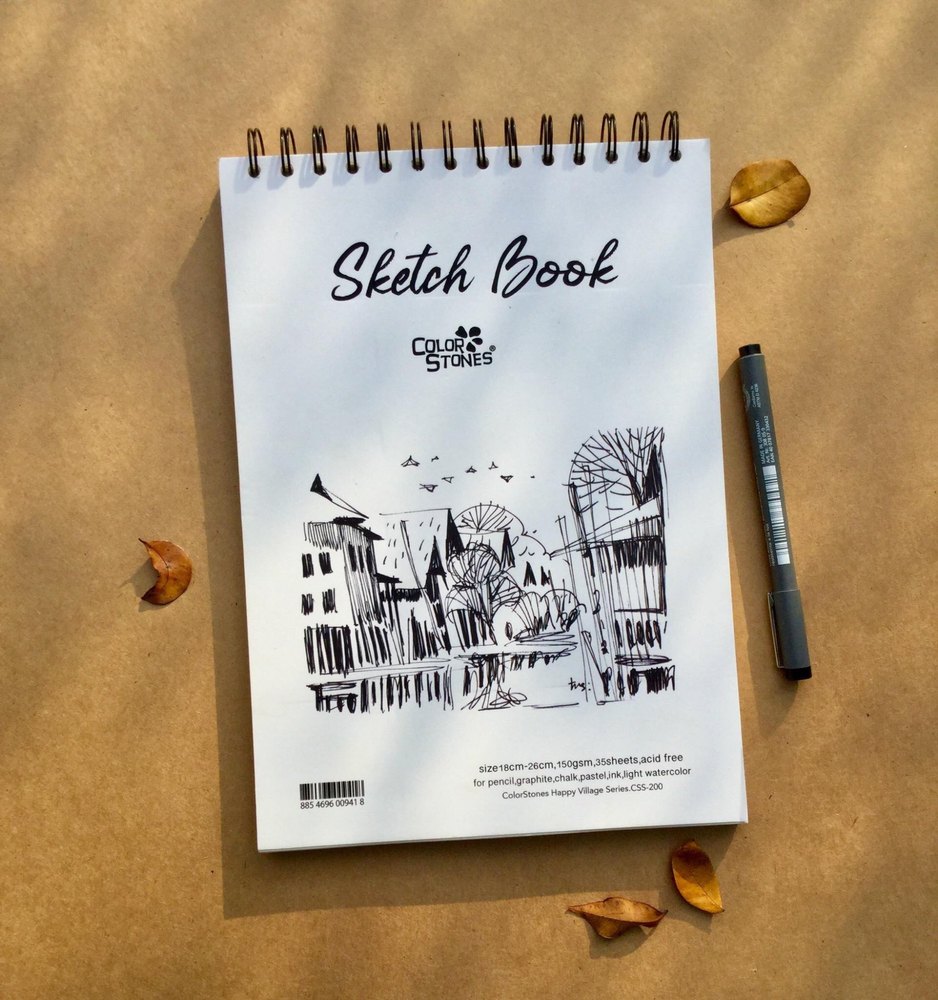 Sketch Book
COLOR
STONES®
tvs.
size18cm-26cm,150gsm,35sheets,acid free
for pencil,graphite,chalk,pastel,ink,light watercolor
ColorStones Happy Village Series.CSS-200
885 4696 00941 8
MADE IN GERMANY